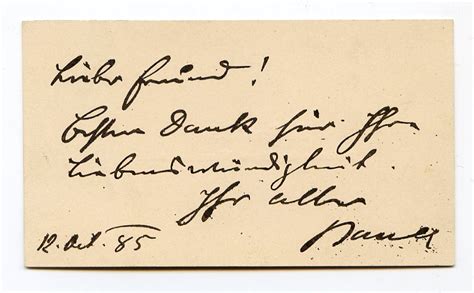 Lieber Freund!
Besten Dank für Ihre
Liebenswürdigkeit.
Ihr alter
12. Oct. 85